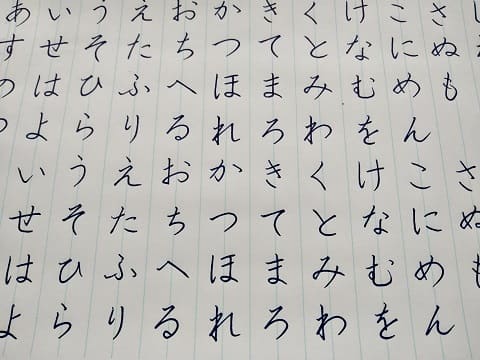 あいうえおかきくけこさし
すせそたちつてとなにぬ
のはひふへほまみむめも
よらりるれろわをん
いうえおかきくけこさ
せそたちつてとなにぬ
はひふへほまみむめも
よらりるれろわをん